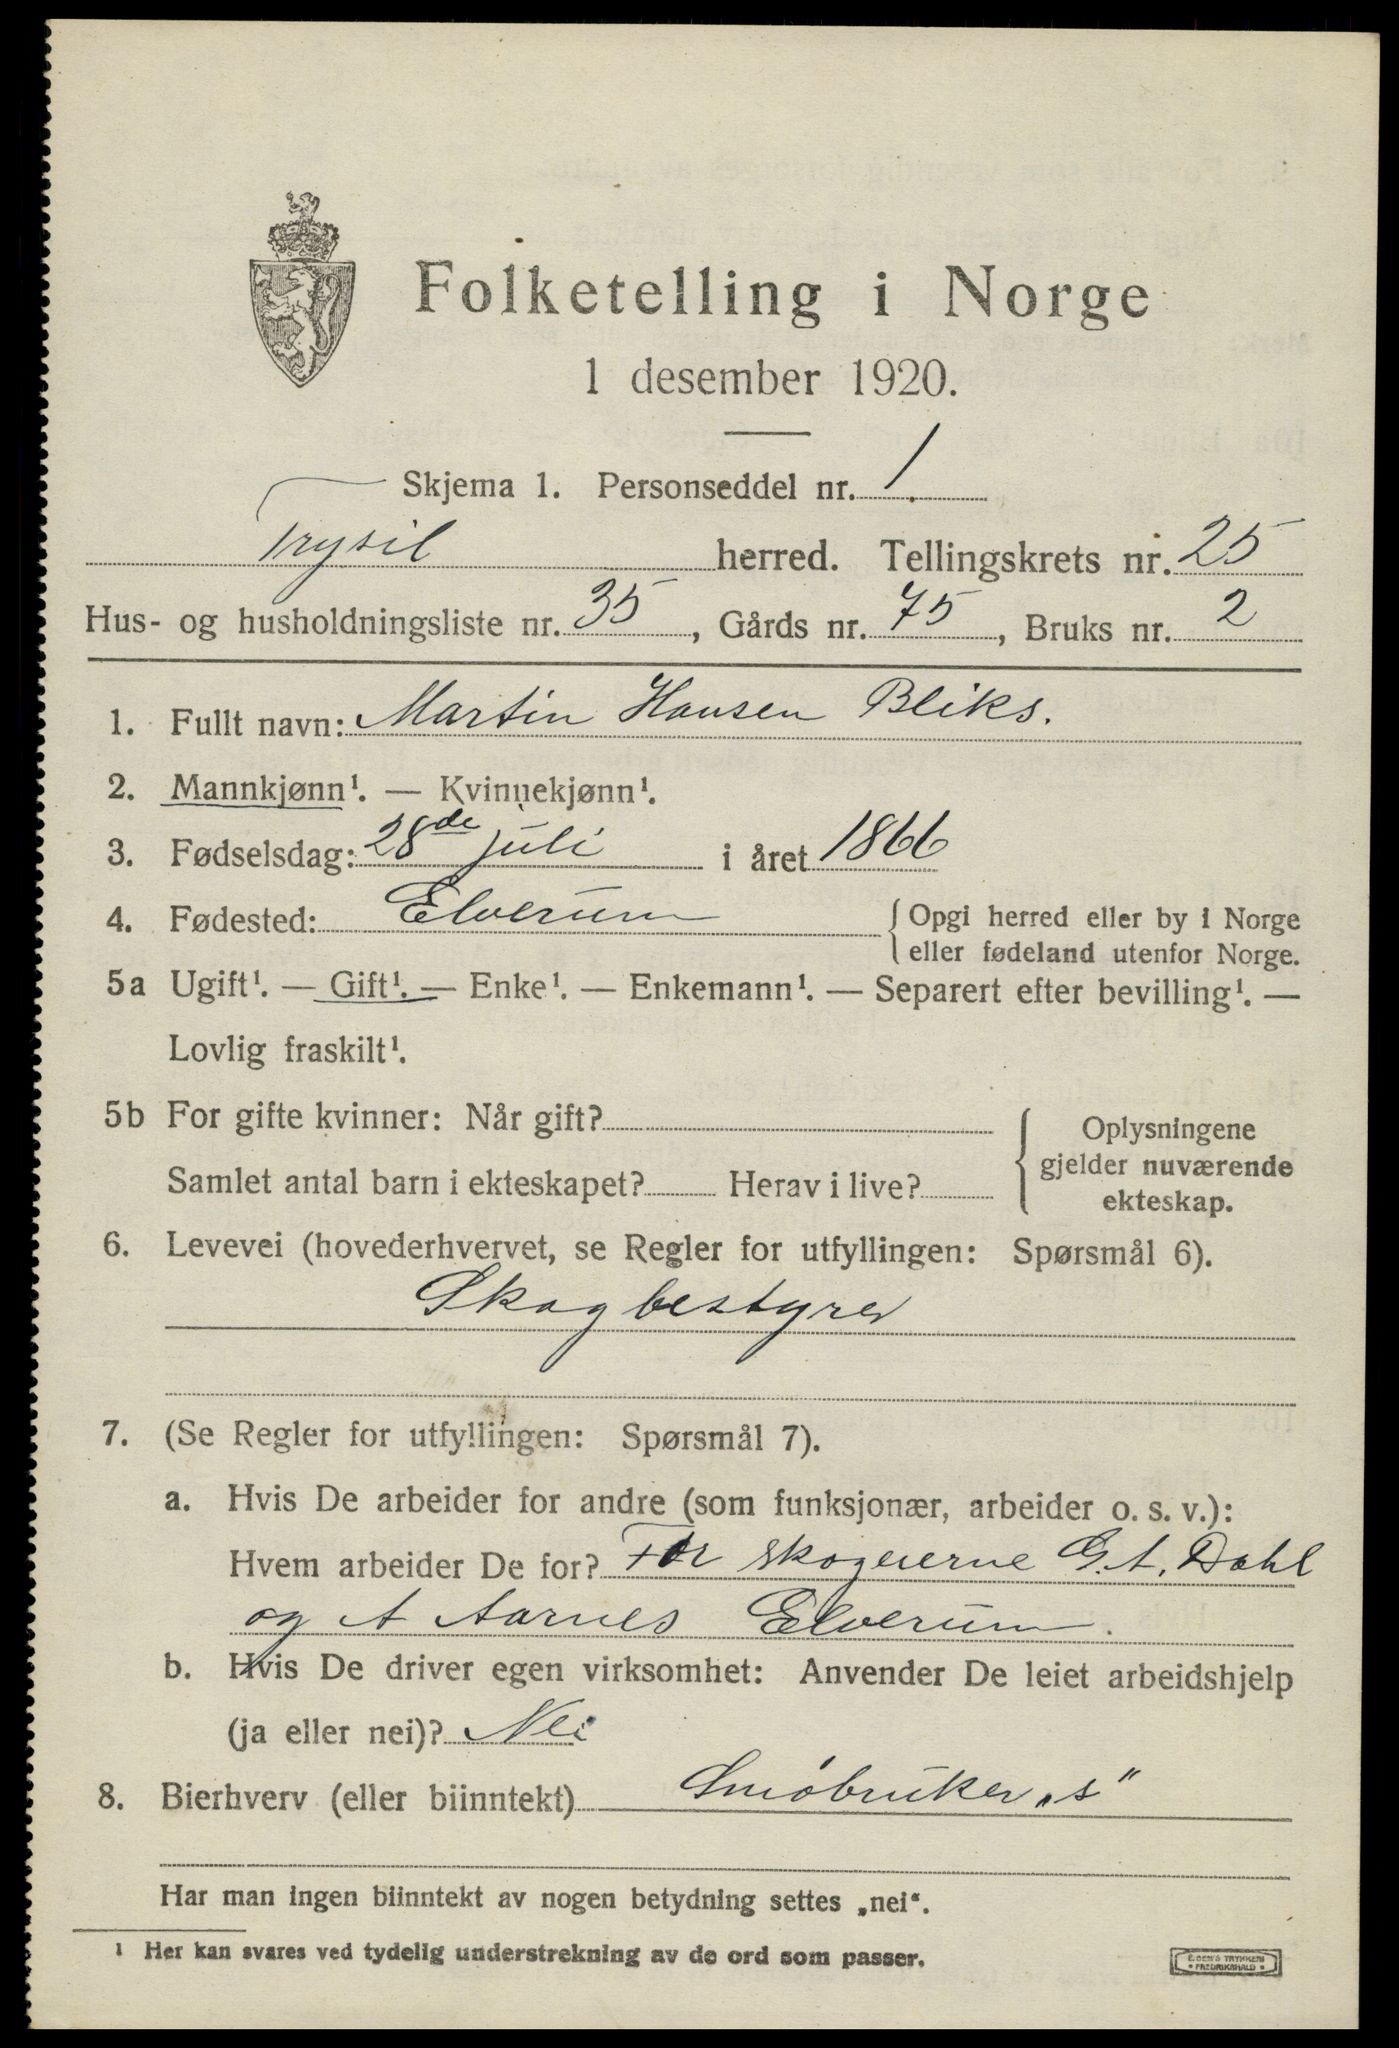 Folketelling i Norge
1 desember 1920.
Skjema 1. Personseddel nr. 1.
Trysil herred. Tellingskrets nr. 25
Hus- og husholdningsliste nr. 35, Gårds nr. 75, Bruks nr. 2
1. Fullt navn: Martin Hansen Bliks.
2. Mannkjønn¹. — Kvinnekjønn¹.
3. Fødselsdag: 28de juli i året 1866
4. Fødested: Elverum { Opgi herred eller by i Norge
eller fødeland utenfor Norge.
5a Ugift¹. — Gift¹. — Enke¹. — Enkemann¹. — Separert efter bevilling¹. —
Lovlig fraskilt¹.
5b For gifte kvinner: Når gift?
Samlet antal barn i ekteskapet? Herav i live?
{ Oplysningene
gjelder nuværende
ekteskap.
6. Levevei (hovederhvervet, se Regler for utfyllingen: Spørsmål 6).
Skogbestyrer
7. (Se Regler for utfyllingen: Spørsmål 7).
a. Hvis De arbeider for andre (som funksjonær, arbeider o. s. v.):
Hvem arbeider De for? For skogeierne G. A. Dahl
og A Aarnes Elverum.
b. Hvis De driver egen virksomhet: Anvender De leiet arbeidshjelp
(ja eller nei)? Nei
8. Bierhverv (eller biinntekt) Småbruker „s"
Har man ingen biinntekt av nogen betydning settes „nei".
1 Her kan svares ved tydelig understrekning av de ord som passer.
FREDRIKSHALD